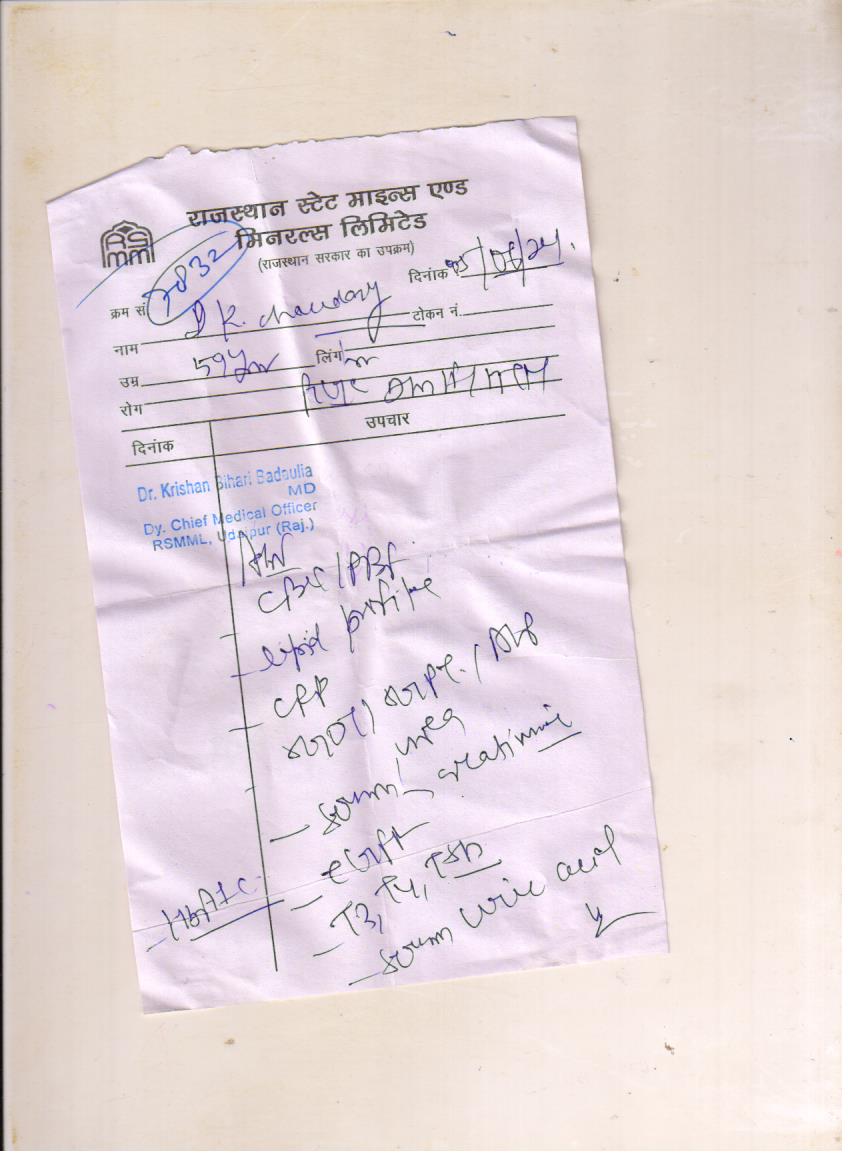 राजस्थान स्टेट माइन्स एण्ड
मिनरल्स लिमिटेड
(राजस्थान सरकार का उपक्रम)
RS
MM
क्रम सं 7832 दिनांक
नाम K. Chaudary टोकन नं.
उम्र 59 लिंग
रोग
दिनांक उपचार
Dr. Krishan Bihari Badaulia
MD
Dy. Chief Medical Officer
RSMML, Udaipur (Raj.)
CBC / PBF
- lipid profile
- CRP
SGOT / SGPT / ALP
- serum urea
creatinine
- HbA1C
- eGFR
- T3, T4, TSH
- serum uric acid